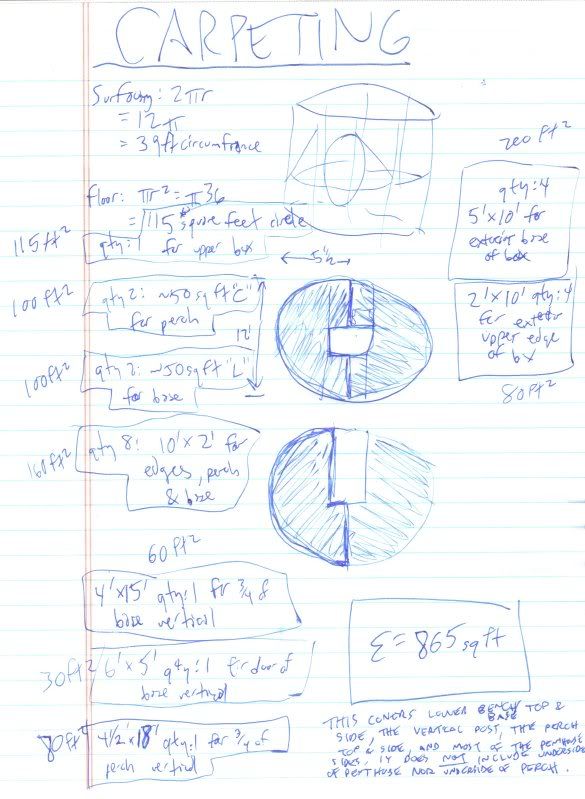 CARPETING
Surfacing: 2πr
= 12π
= 39ft circumfrance
floor: πr² = π36
= 115 square feet circle
115ft²
qty:1 for upper box
5½
100ft²
qty 2: ~50 sq ft "C"
for perch
12'
100ft²
qty 2: ~50sqft "L"
for base
160ft²
qty 8: 10'x2' for
edges, perch
& base
200ft²
qty:4
5'x10' for
exterior base
of box
2'x10' qty:4
for exterior
upper edge
of bx
80ft²
60ft²
4'x15' qty:1 for ¾ of
base vertical
30ft²
6'x5' qty:1 for door of
base vertical
80ft²
4½'x18' qty:1 for ¾ of
perch vertical
Σ=865 sq ft
THIS COVERS LOWER BENCH TOP &
BASE
SIDE, THE VERTICAL POST, THE PERCH
TOP & SIDE, AND MOST OF THE PENTHOUSE
SIDES. IT DOES NOT INCLUDE UNDERSIDE
OF PENTHOUSE NOR UNDERSIDE OF PERCH.